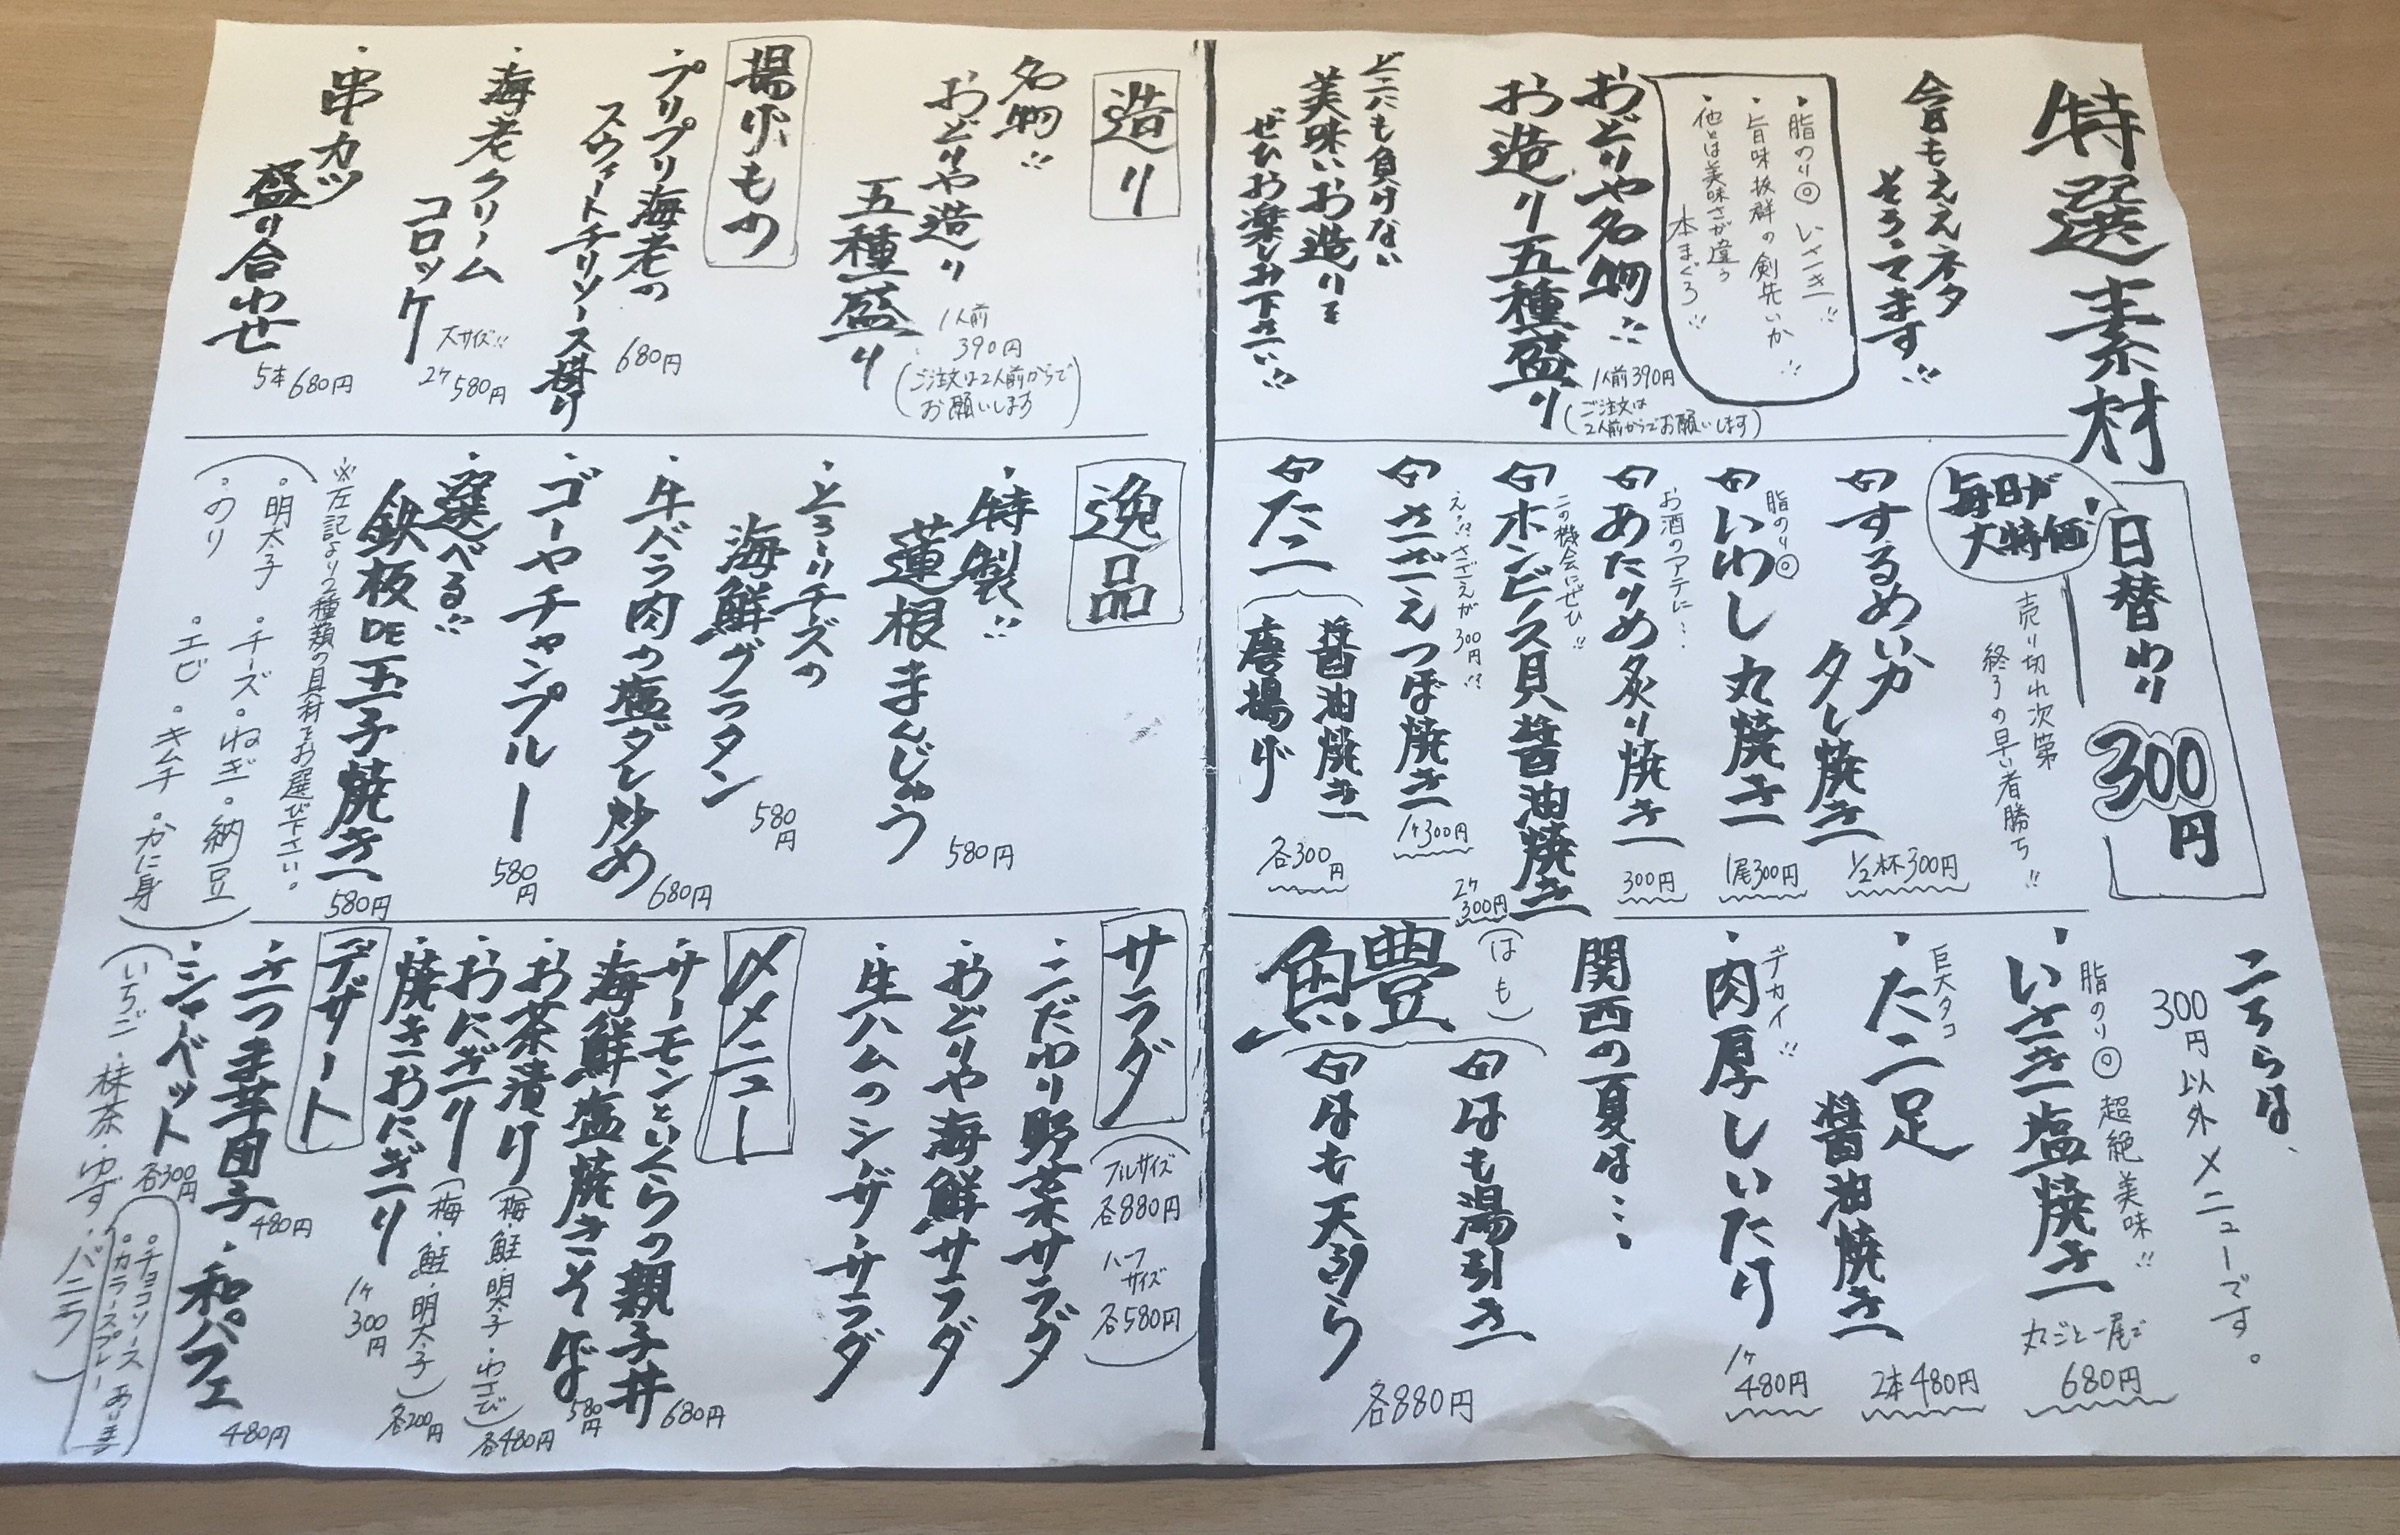 特選素材
今日もええネタ
そろってます!!
・脂のり◎ いさき!!
・旨味抜群の剣先いか!!
・他とは美味さが違う
本まぐろ!!
おどりや名物!!
お造り五種盛り
1人前390円
(ご注文は
2人前からでお願いします)
どこにも負けない
美味いお造りを
ぜひお楽しみ下さい!!
日替わり
300円
毎日が
大特価!
売り切れ次第
終了の早い者勝ち!!
するめいか
タレ焼き
1/2杯300円
脂のり◎
いわし丸焼き
1尾300円
お酒のアテに…
あたりめ炙り焼き
300円
この機会にぜひ!!
ホンビノス貝醤油焼き
2ヶ
300円
え!?さざえが300円!?
さざえつぼ焼き
1ヶ300円
たこ
醤油焼き
唐揚げ
各300円
こちらは、
300円以外メニューです。
脂のり◎ 超絶美味!!
・いさき塩焼き
丸ごと一尾で
680円
巨大タコ
・たこ足
醤油焼き
2本480円
デカイ!!
・肉厚しいたけ
1ヶ
480円
関西の夏は…
(はも)
鱧
はも湯引き
はも天ぷら
各880円
造り
名物!!
おどりや造り
五種盛り
1人前
390円
(ご注文は2人前からで
お願いします)
揚げもの
・プリプリ海老の
スウィートチリソース掛け
680円
・海老クリーム
コロッケ
大サイズ!!
2ヶ580円
・串カツ
盛り合わせ
5本680円
逸品
・特製!!
蓮根まんじゅう
580円
・とろ〜りチーズの
海鮮グラタン
580円
・牛バラ肉の塩ダレ炒め
680円
・ゴーヤチャンプルー
580円
・選べる!!
鉄板DE玉子焼き
580円
※左記より2種類の具材をお選び下さい。
(。明太子 。チーズ 。ねぎ 。納豆
。のり 。エビ 。キムチ 。かに身)
サラダ
(フルサイズ
各880円
ハーフ
サイズ
各580円)
・こだわり野菜サラダ
・おどりや海鮮サラダ
・生ハムのシーザーサラダ
〆メニュー
・サーモンといくらの親子丼
680円
・海鮮塩焼きそば
580円
・お茶漬け(梅・鮭・明太子・わさび)
各480円
・おにぎり(梅・鮭・明太子)
各200円
・焼きおにぎり
1ヶ
300円
デザート
・さつま芋団子
480円
・和パフェ
480円
・シャーベット
各300円
(いちご・抹茶・ゆず・バニラ)
。チョコソース
。カラースプレー
あります